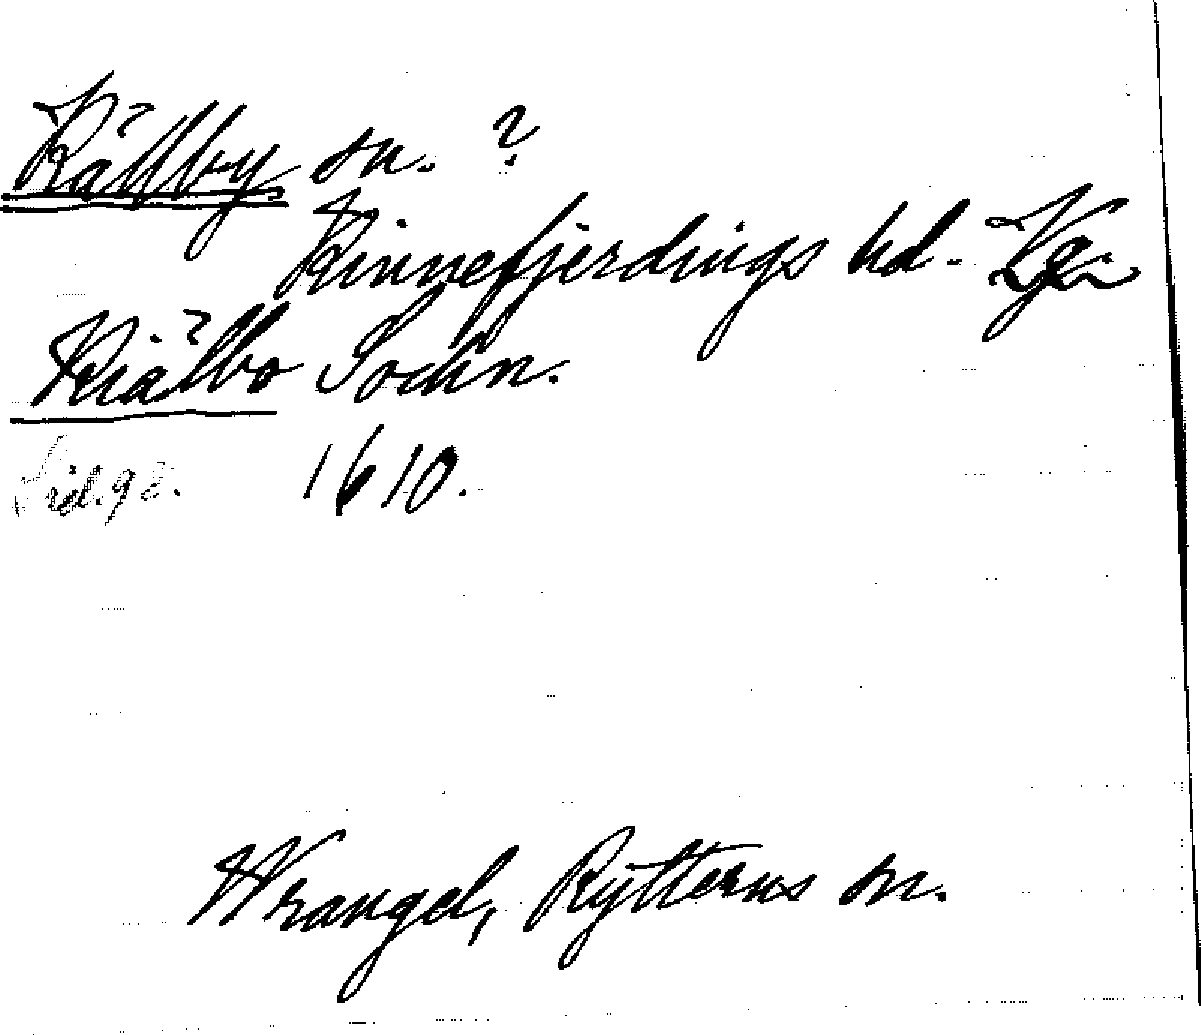 Källby sn. ?
Kinnefjerdings hd. Vg.
Kiälbo Sochn.
Sid. 92. 1610.
Wrangel, Rytterns sn.